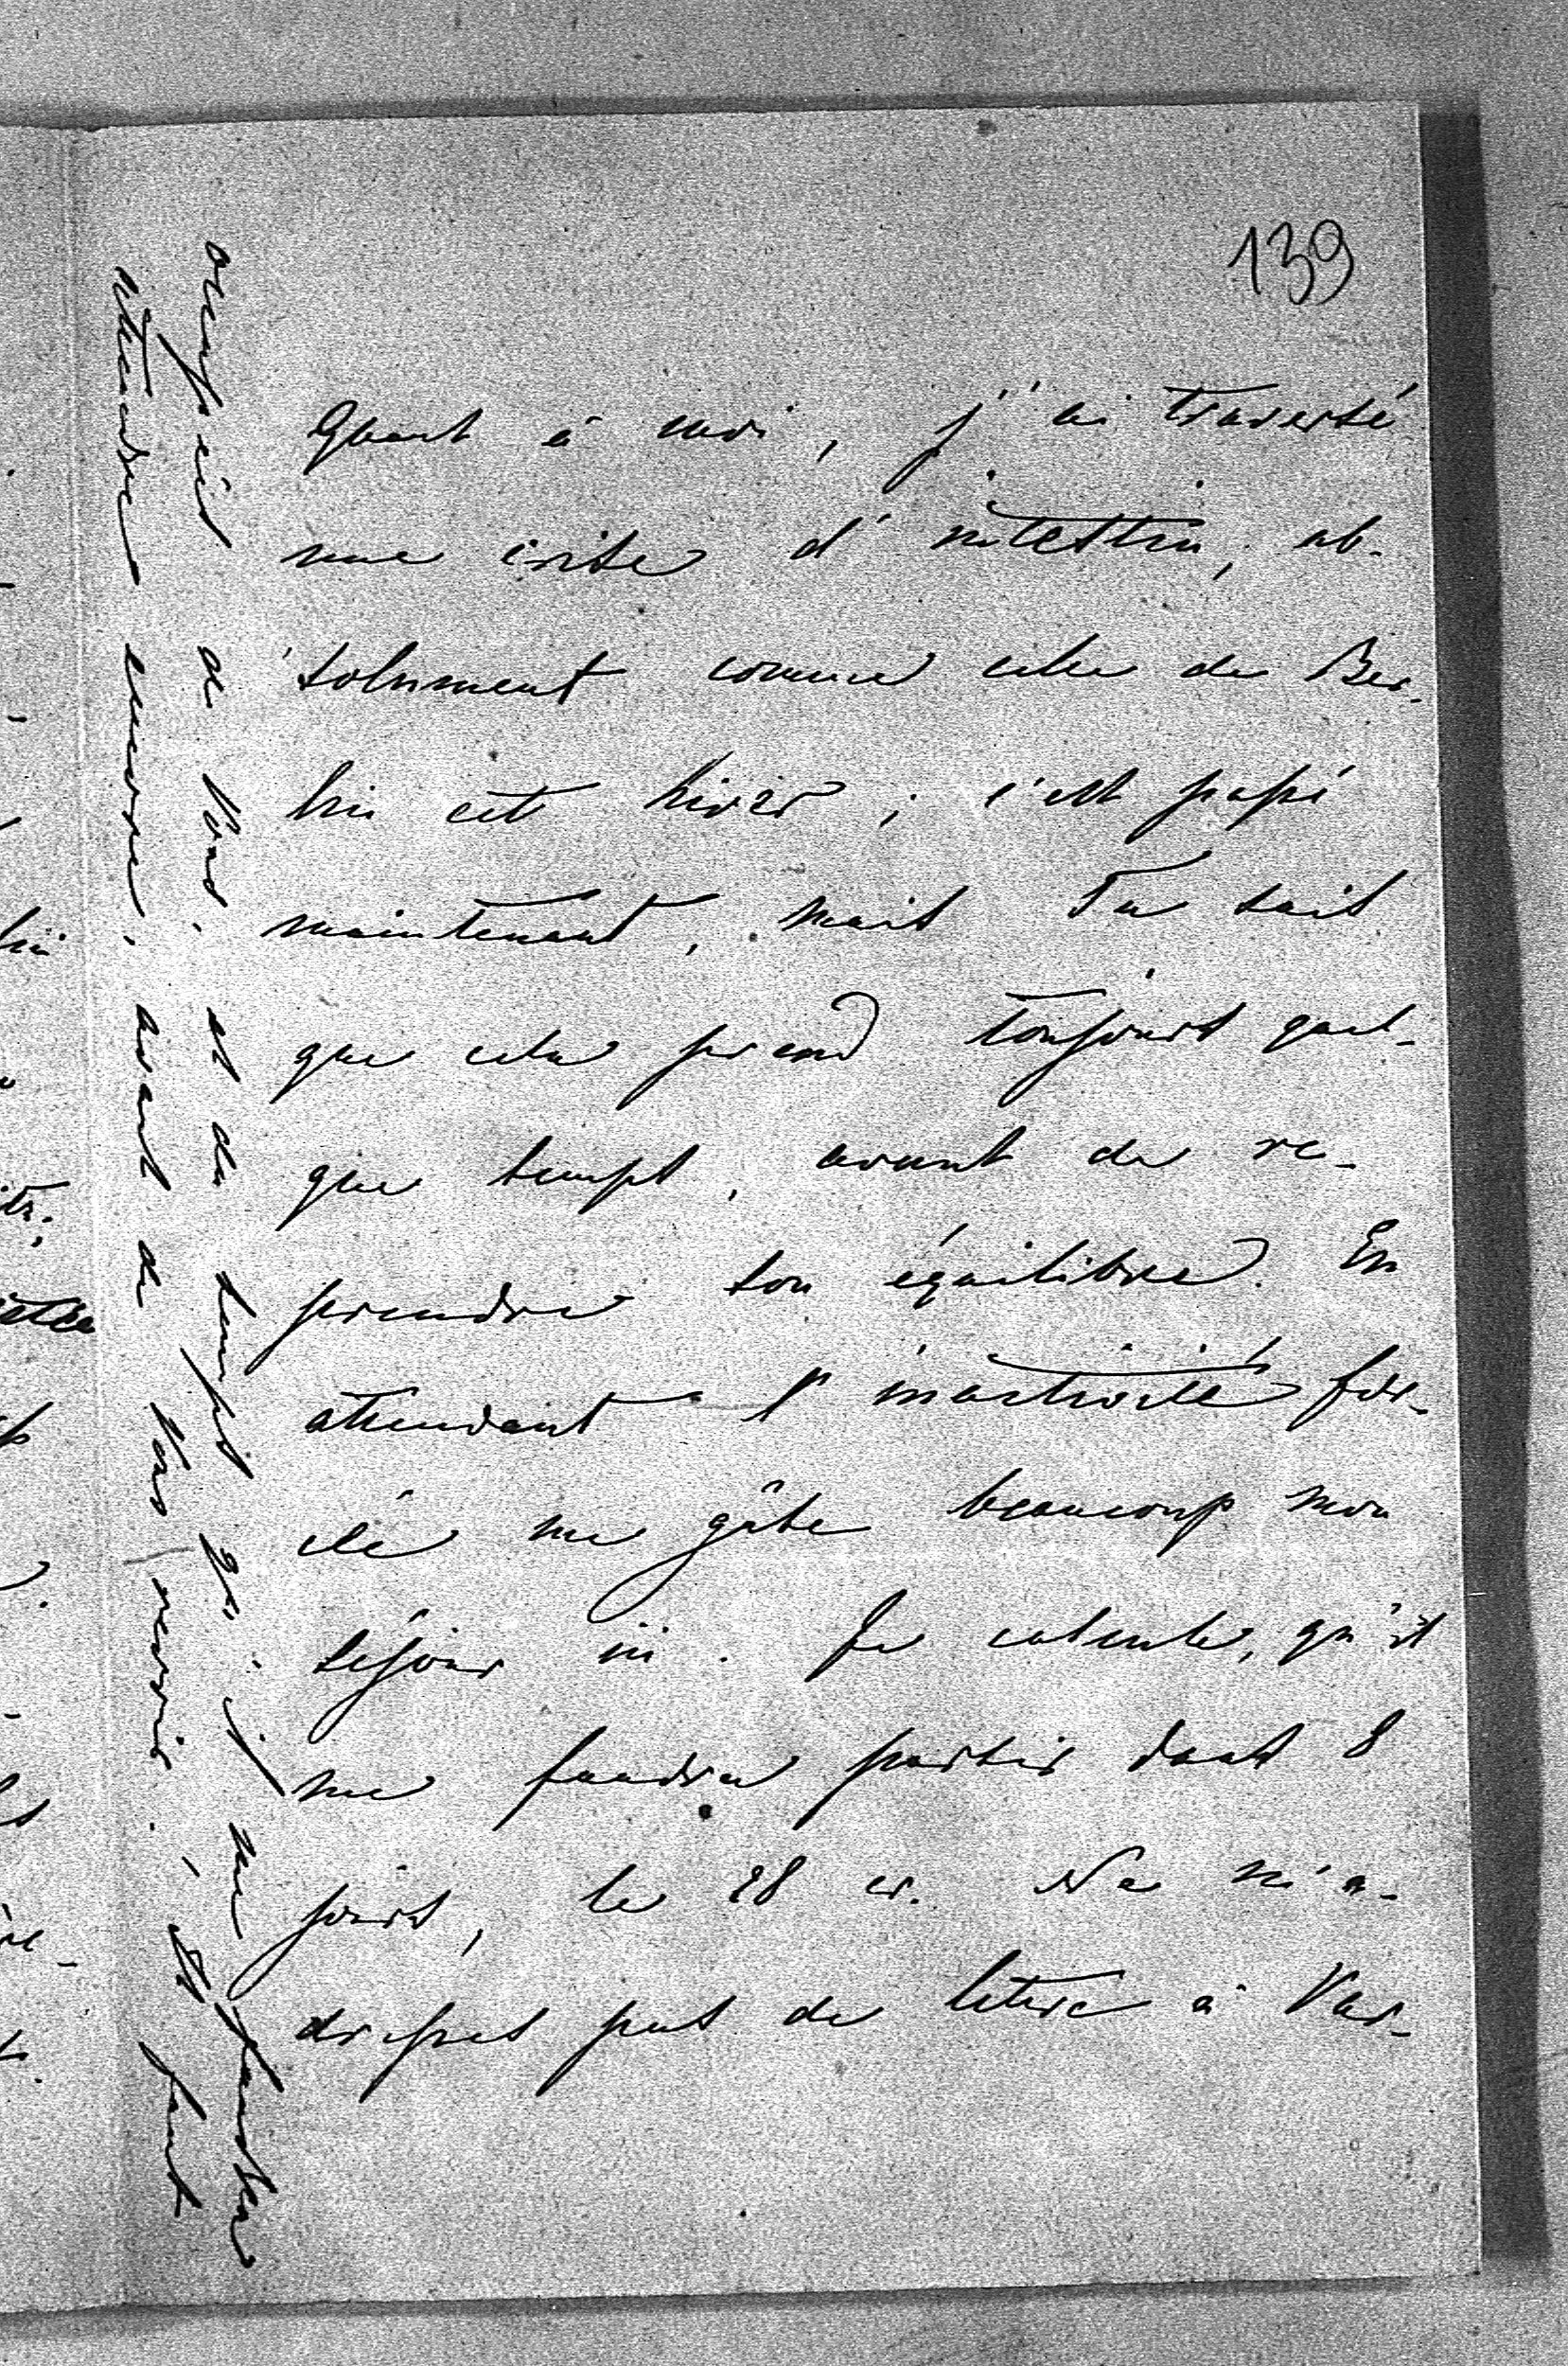 139
Quant à moi, j'ai traversé
une crise d'intestin, ab-
solument comme celle de Ber-
lin cet hiver; c'est passé
maintenant, mais Tu sais
que cela prend toujours quel-
que temps, avant de re-
prendre son équilibre. En
attendant l'inactivité for-
cée me gâte beaucoup mon
séjour ici. Je calcule, qu'il
me faudra partir dans 8
jours, le 28 cr. Ne m'a-
dresses pas de lettre à Var-
de Vous, et du temps qu'il me faudra
attendre encore, avant de Vous revoir.